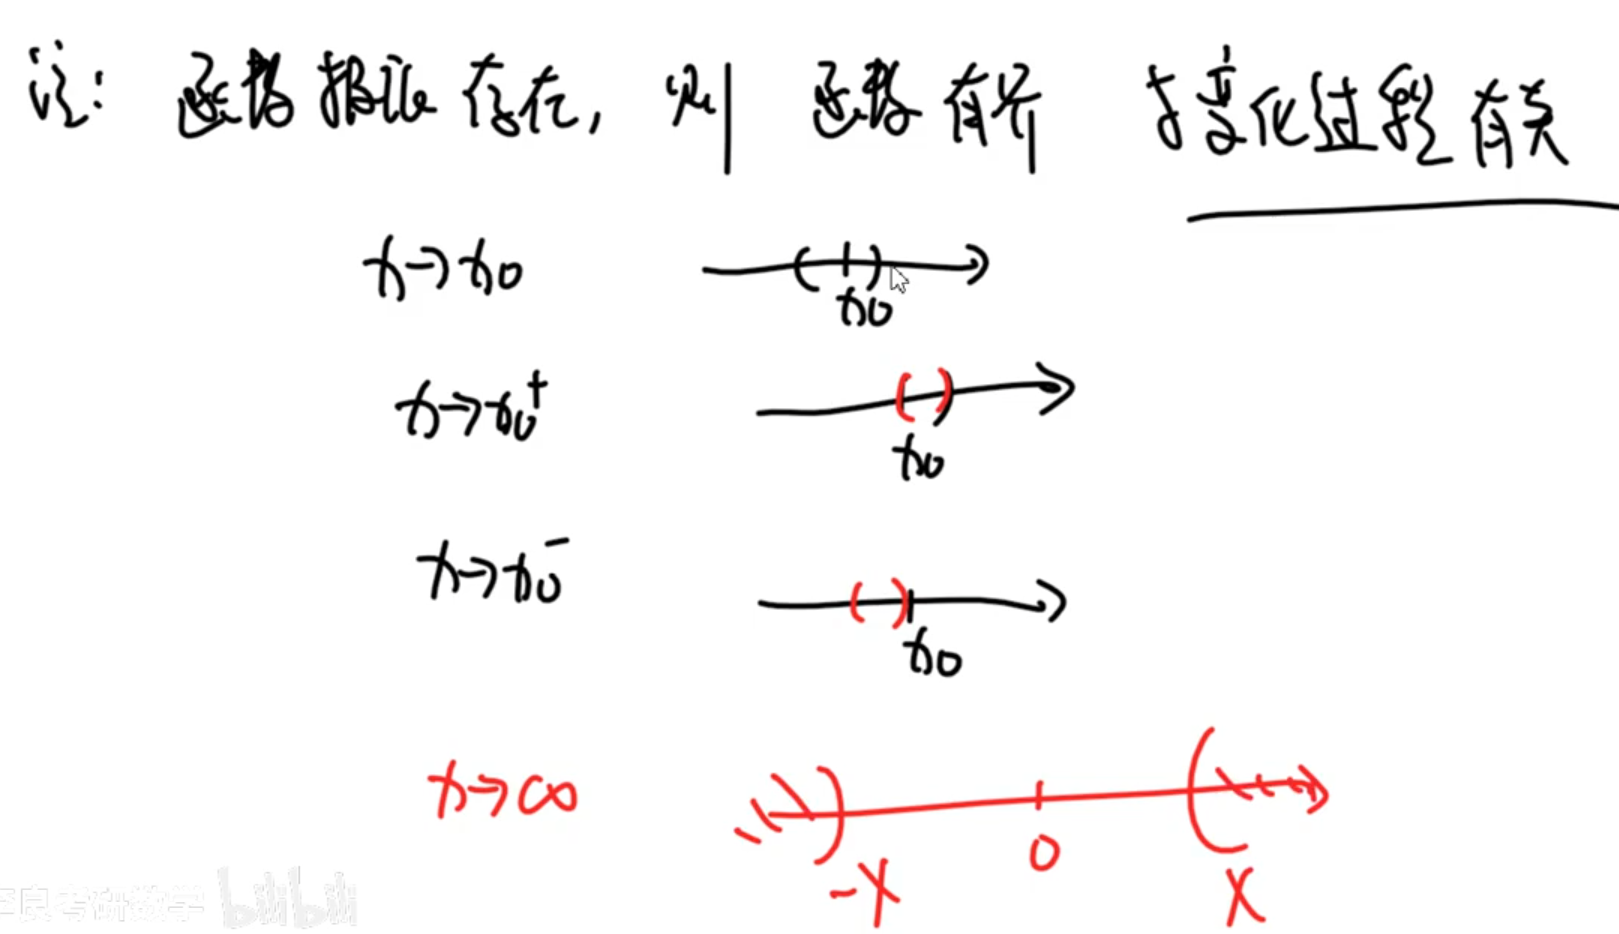 注: 函数极限存在, 则 函数有界 与变化过程有关
x→x0
x0
x→x0⁺
x0
x→x0⁻
x0
x→∞
-X 0 X
良考研数学 bilibili